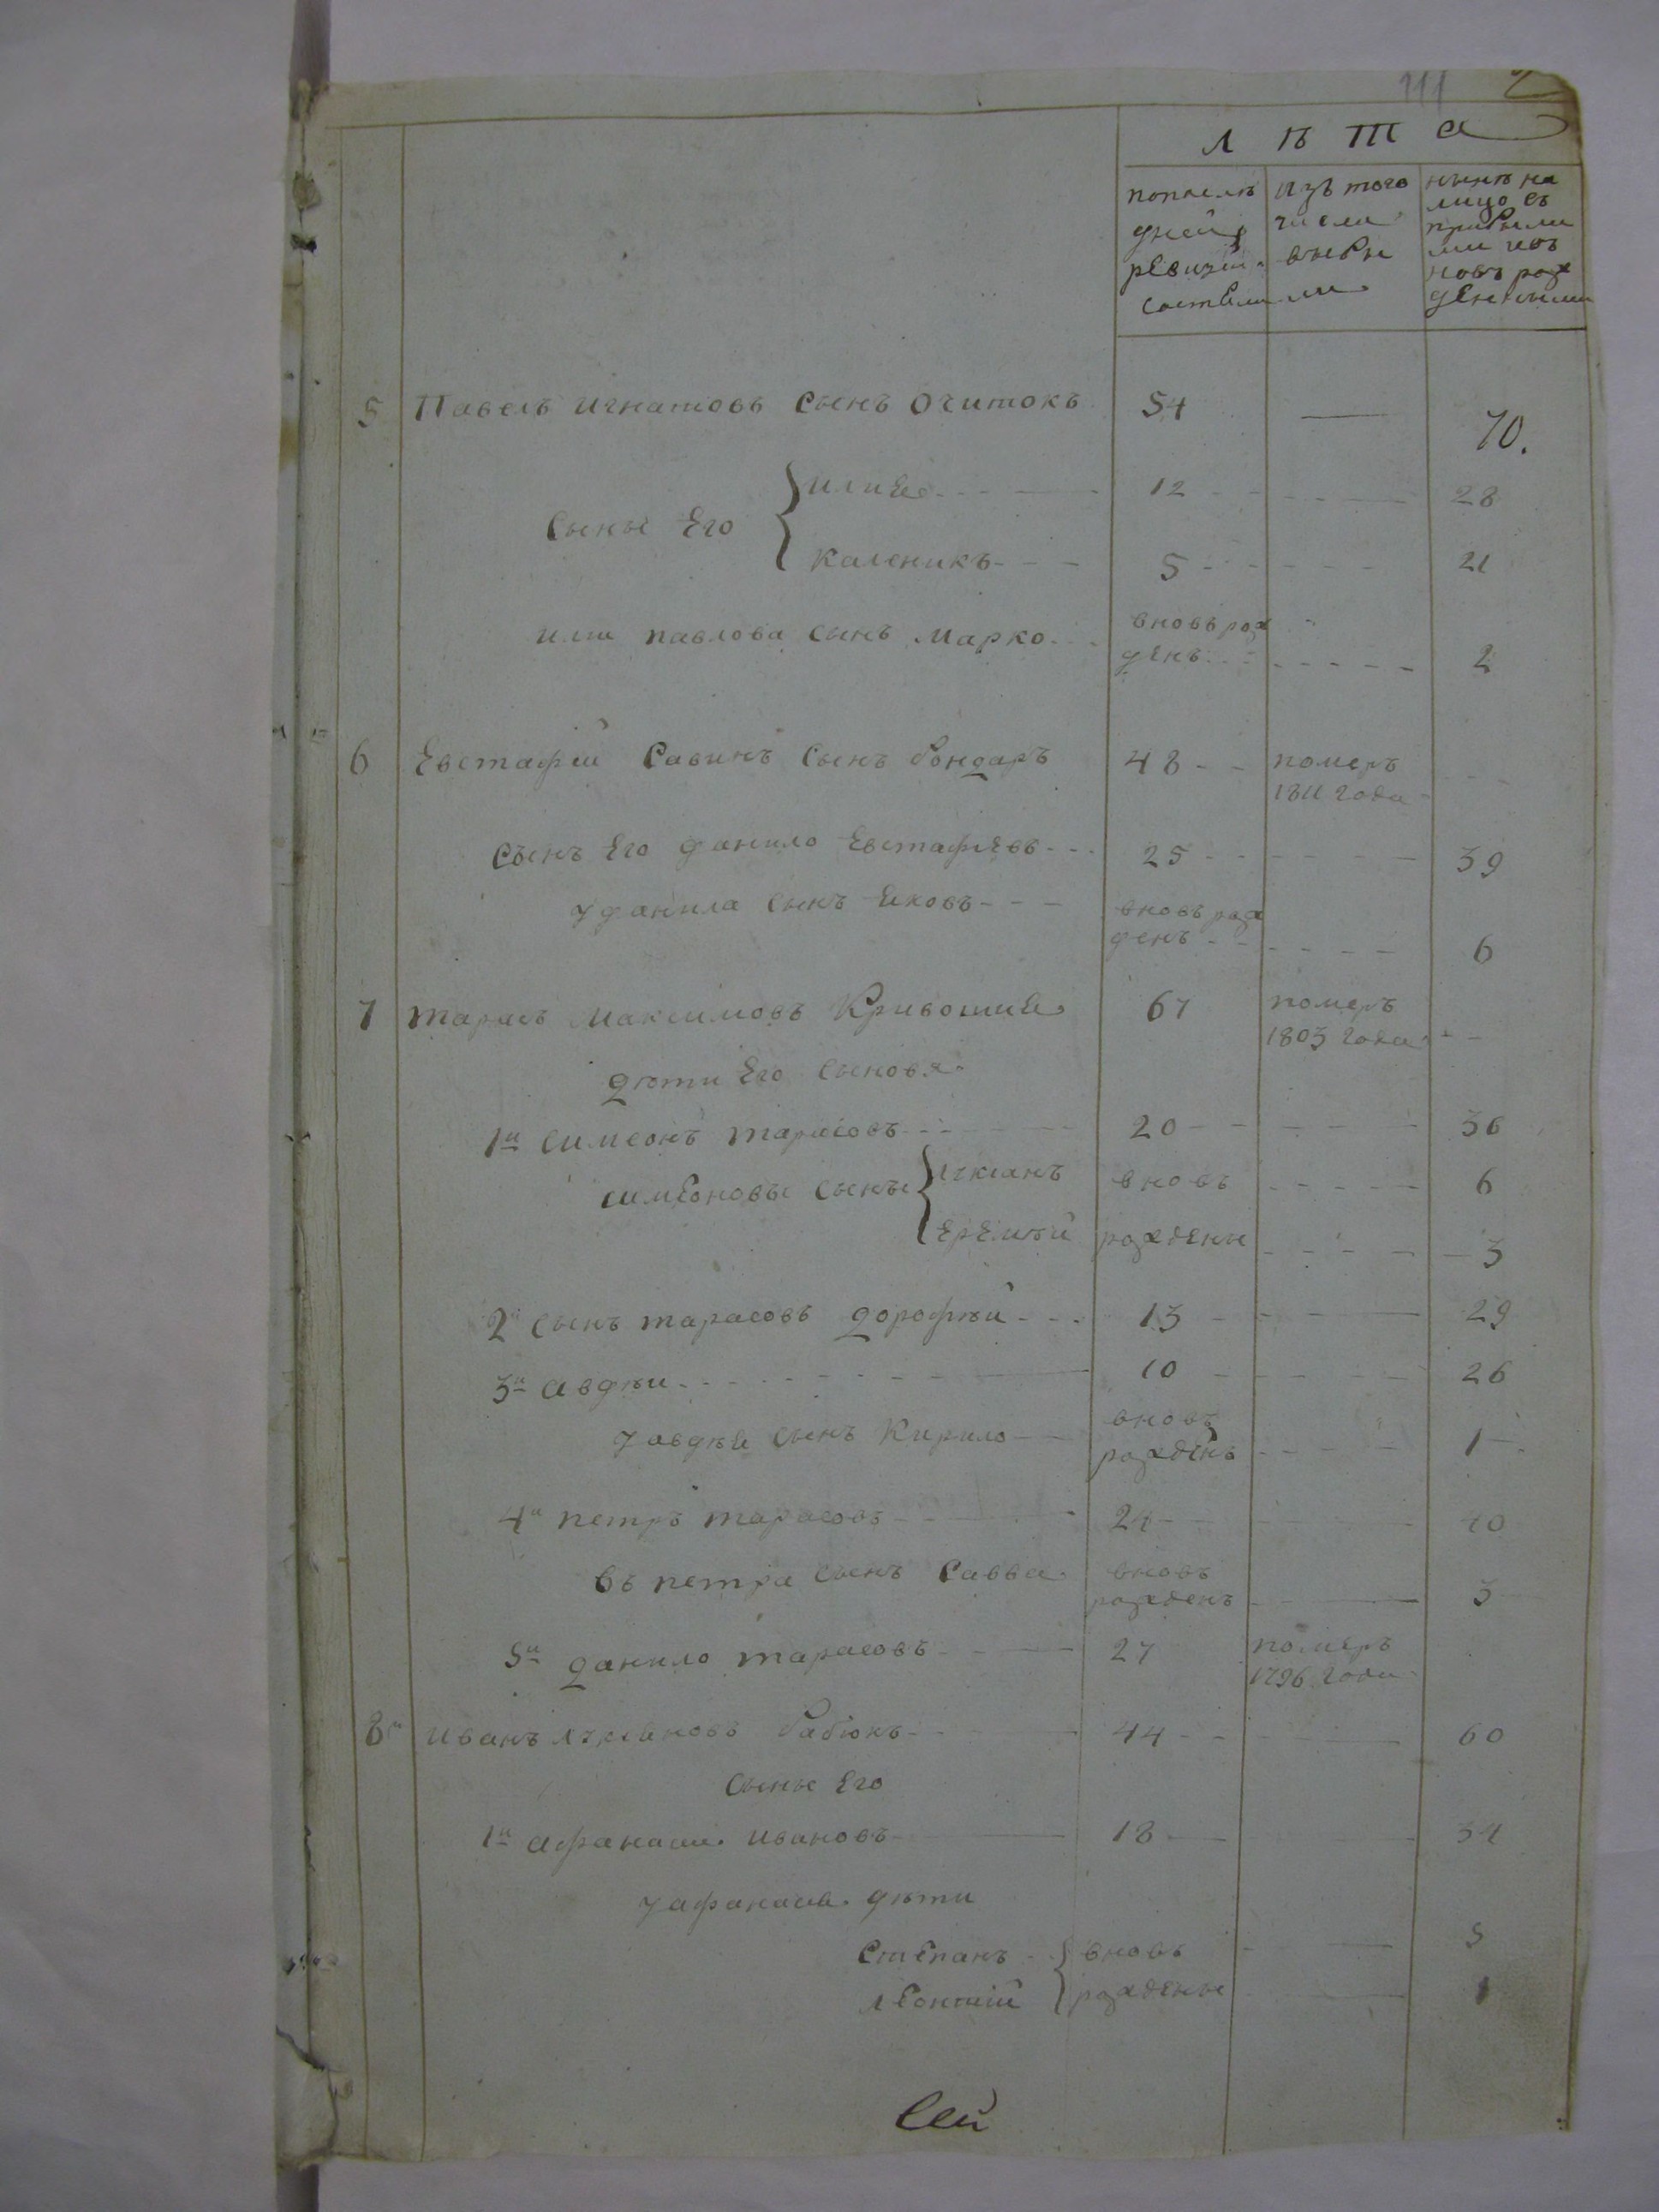 111 2
Лѣта
попослѣ
дней
ревизіи
состояли
изъ того
числа
выбы
ло
нынѣ на
лицо съ
прибылы
ми и въ
новь рож
денными
5 Павелъ Игнатовъ сынъ Очитокъ 54 — 70.
Сыны Его { илия 12 28
Каленикъ 5 21
или павлова сынъ Марко вновь рож
денъ 2
6 Евстафій Савинъ Сынъ бондаръ 48 померъ
1811 года
Сынъ Его данило Евстафіевъ 25 39
у данила сынъ яковъ вновь рож
денъ 6
7 тарасъ Максимовъ Кривошия 67 померъ
1803 года
дѣти Его сыновя
1й симеонъ тарасовъ 20 36
симеоновы сыны { лукianъ вновь 6
Еремѣй рождены 3
2й сынъ тарасовъ дорофѣй 13 29
3й авдѣи 10 26
у авдѣя сынъ Кирило вновь
рожденъ 1
4й петръ тарасовъ 24 40
въ петра сынъ Савва вновь
рожденъ 3
5й данило тарасовъ 27 померъ
1796 года
8й иванъ лукіяновъ бабюкъ 44 60
Сыны Его
1й афанасии ивановъ 18 34
у афанасия дѣти
Степанъ { вновь 5
леонтій рождены 1
Сей